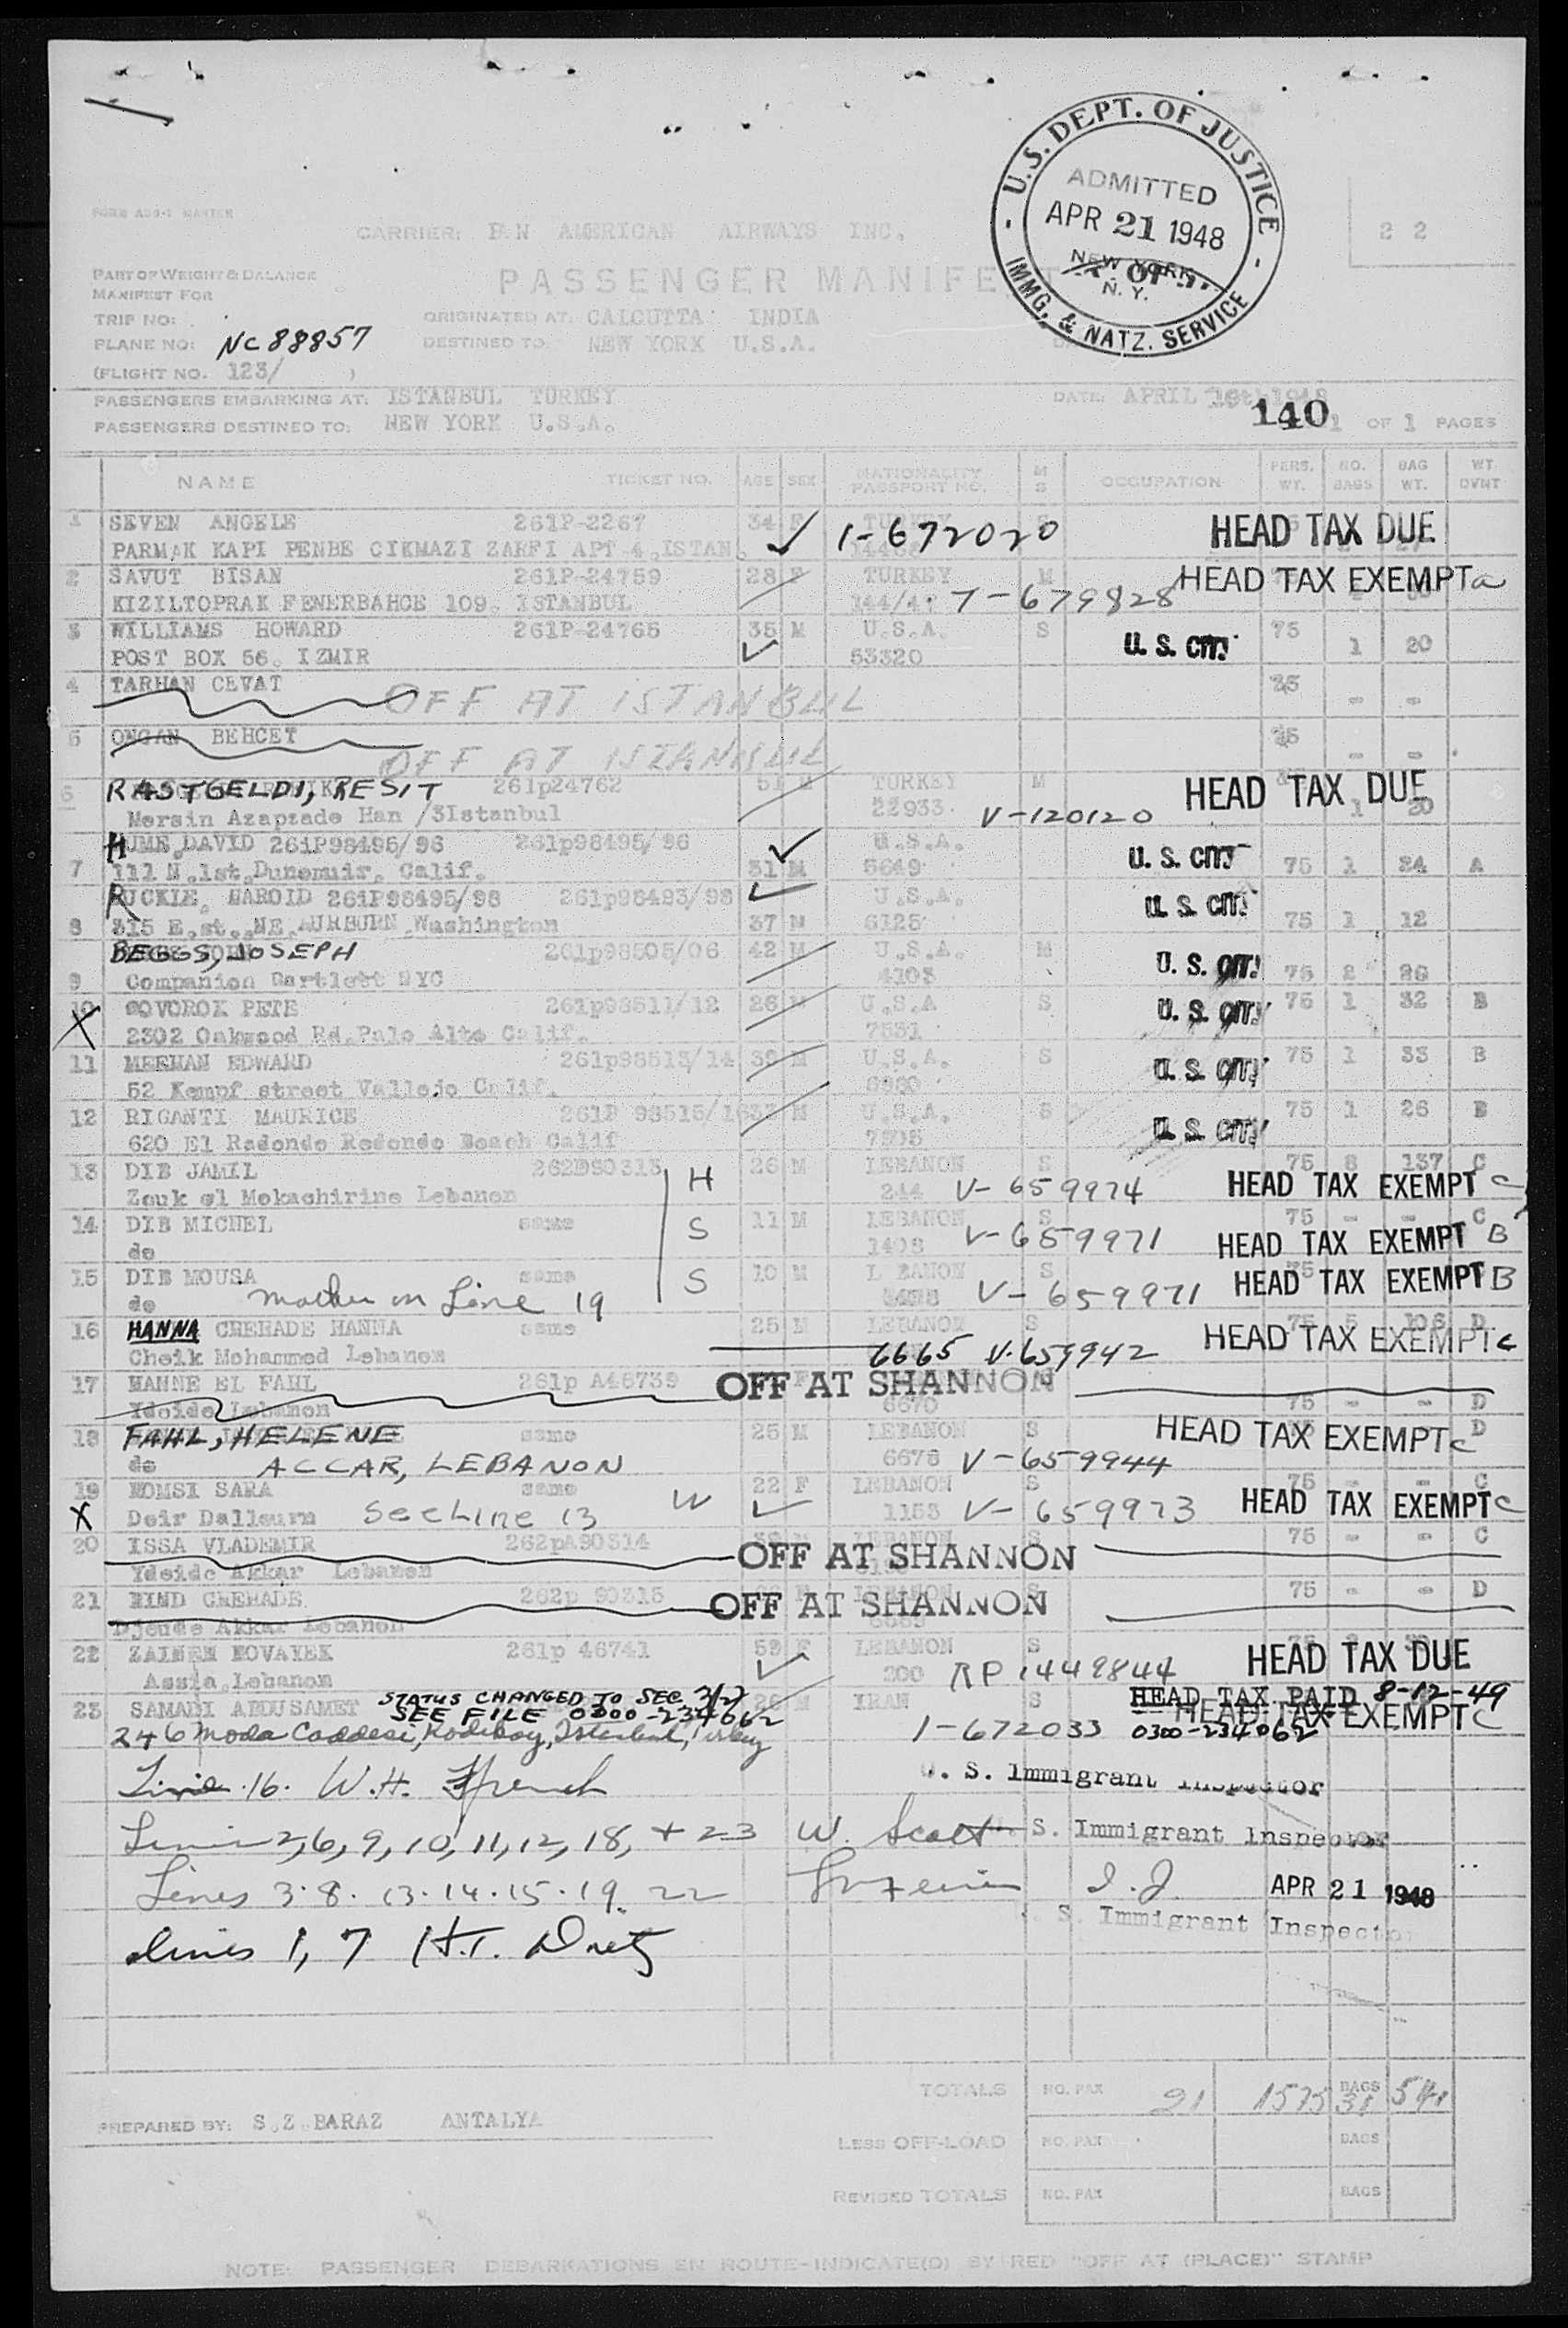 U.S. DEPT. OF JUSTICE
IMMG. & NATZ. SERVICE
ADMITTED
APR 21 1948
NEW YORK
N. Y.
FORM MASTER
CARRIER: PAN AMERICAN AIRWAYS INC.
2 2
PART OF WEIGHT & BALANCE
PASSENGER MANIFEST
MANIFEST FOR
TRIP NO: ORIGINATED AT: CALCUTTA INDIA
PLANE NO: NC88857 DESTINED TO: NEW YORK U.S.A.
(FLIGHT NO. 123/ )
PASSENGERS EMBARKING AT: ISTANBUL TURKEY DATE: APRIL 1948
PASSENGERS DESTINED TO: NEW YORK U.S.A. 140 1 OF 1 PAGES
NAME TICKET NO. AGE SEX NATIONALITY PASSPORT NO. M S OCCUPATION PERS. WT. NO. BAGS BAG WT. WT DVNT
1 SEVEN ANGELE 261P-2267 34 F TURKEY 1-672020 HEAD TAX DUE
PARMAK KAPI PENBE CIKMAZI ZARFI APT 4.ISTAN.
2 SAVUT BISAN 261P-24759 28 F TURKEY M HEAD TAX EXEMPT a
KIZILTOPRAK FENERBAHCE 109. ISTANBUL 144/4 T-679828
3 WILLIAMS HOWARD 261P-24765 35 M U.S.A. S U. S. CIT. 75 1 20
POST BOX 56. IZMIR 53320
4 TARHAN CEVAT OFF AT ISTANBUL - -
5 ONGAN BEHCET OFF AT ISTANBUL - -
6 RASTGELDI, RESIT 261p24762 51 M TURKEY M HEAD TAX DUE
Mersin Azapzade Han /3Istanbul 22933 V-120120 1 20
HUME DAVID 261P98495/96 261p98495/96 U.S.A. U. S. CIT.
7 111 N.1st.Dunsmuir. Calif. 31 M 5649 75 1 24 A
RUCKIE, HAROLD 261P98495/98 261p98493/98 U.S.A. U. S. CIT.
8 315 E.st.,NE.AURBURN.Washington 37 M 6125 75 1 12
BEGGS, JOSEPH 261p98505/06 42 M U.S.A. M U. S. CIT.
9 Companion Bartlett NYC 4103 75 2 26
10 GOVOROK PETE 261p98511/12 26 M U.S.A S U. S. CIT. 75 1 32 B
X 2302 Oakwood Rd.Palo Alto Calif. 7531
11 MEEHAN EDWARD 261p98513/14 M U.S.A. S U. S. CIT. 75 1 33 B
52 Kempf street Vallejo Calif.
12 RIGANTI MAURICE 261P 98515/16 M U.S.A. S U. S. CIT. 75 1 26 B
620 El Redondo Redondo Beach Calif
13 DIB JAMIL H 26 M LEBANON S 75 8 137 C
Zouk el Mokachirine Lebanon 244 V-659974 HEAD TAX EXEMPT C
14 DIB MICHEL same S 11 M LEBANON S 75 - - C
do 1408 V-659971 HEAD TAX EXEMPT B
15 DIB MOUSA same S 10 M LEBANON S
do mother on Line 19 V-659971 HEAD TAX EXEMPT B
16 HANNA CHEHADE HANNA same 25 M LEBANON S 75 5 106 D
Cheik Mohammed Lebanon 6665 V-659942 HEAD TAX EXEMPT c
17 HANNE EL FAHL 261p A46739 OFF AT SHANNON
Ydeide Lebanon 6670 75 - - D
18 FAHL, HELENE same 25 M LEBANON S HEAD TAX EXEMPT c D
do ACCAR, LEBANON 6678 V-659944
19 HOMSI SARA same 22 F LEBANON S 75 - - C
X Deir Dalloum See Line 13 W 1153 V-659973 HEAD TAX EXEMPT C
20 ISSA VLADEMIR 262pA90314 OFF AT SHANNON 75 - - C
Ydeide Akkar Lebanon
21 HIND CHEHADE 262p 90315 OFF AT SHANNON 75 - - D
Djeude Akkar Lebanon
22 ZAINEH KOVAYEK 261p 46741 59 F LEBANON S HEAD TAX DUE
Assia.Lebanon 200 RP 1449844
23 SAMADI ABDUSAMET STATUS CHANGED TO SEC. 3(2) M IRAN S HEAD TAX PAID 8-12-49
SEE FILE 0300-234062 HEAD TAX EXEMPT C
246 Moda Caddesi, Kadikoy, Istanbul, Turkey 1-672033 0300-234062
Line 16. W.H. French U. S. Immigrant Inspector
Lines 2, 6, 9, 10, 11, 12, 18, + 23 W. Scott S. Immigrant Inspector
Lines 3·8·13·14·15·19. 22 I.I. APR 21 1948
S. Immigrant Inspector
Lines 1, 7 H.T.
TOTALS NO. PAX 21 1575 BAGS 31 541
PREPARED BY: S.Z.BARAZ ANTALYA
LESS OFF-LOAD NO. PAX BAGS
REVISED TOTALS NO. PAX BAGS
NOTE: PASSENGER DEBARKATIONS EN ROUTE-INDICATE(D) BY RED "OFF AT (PLACE)" STAMP